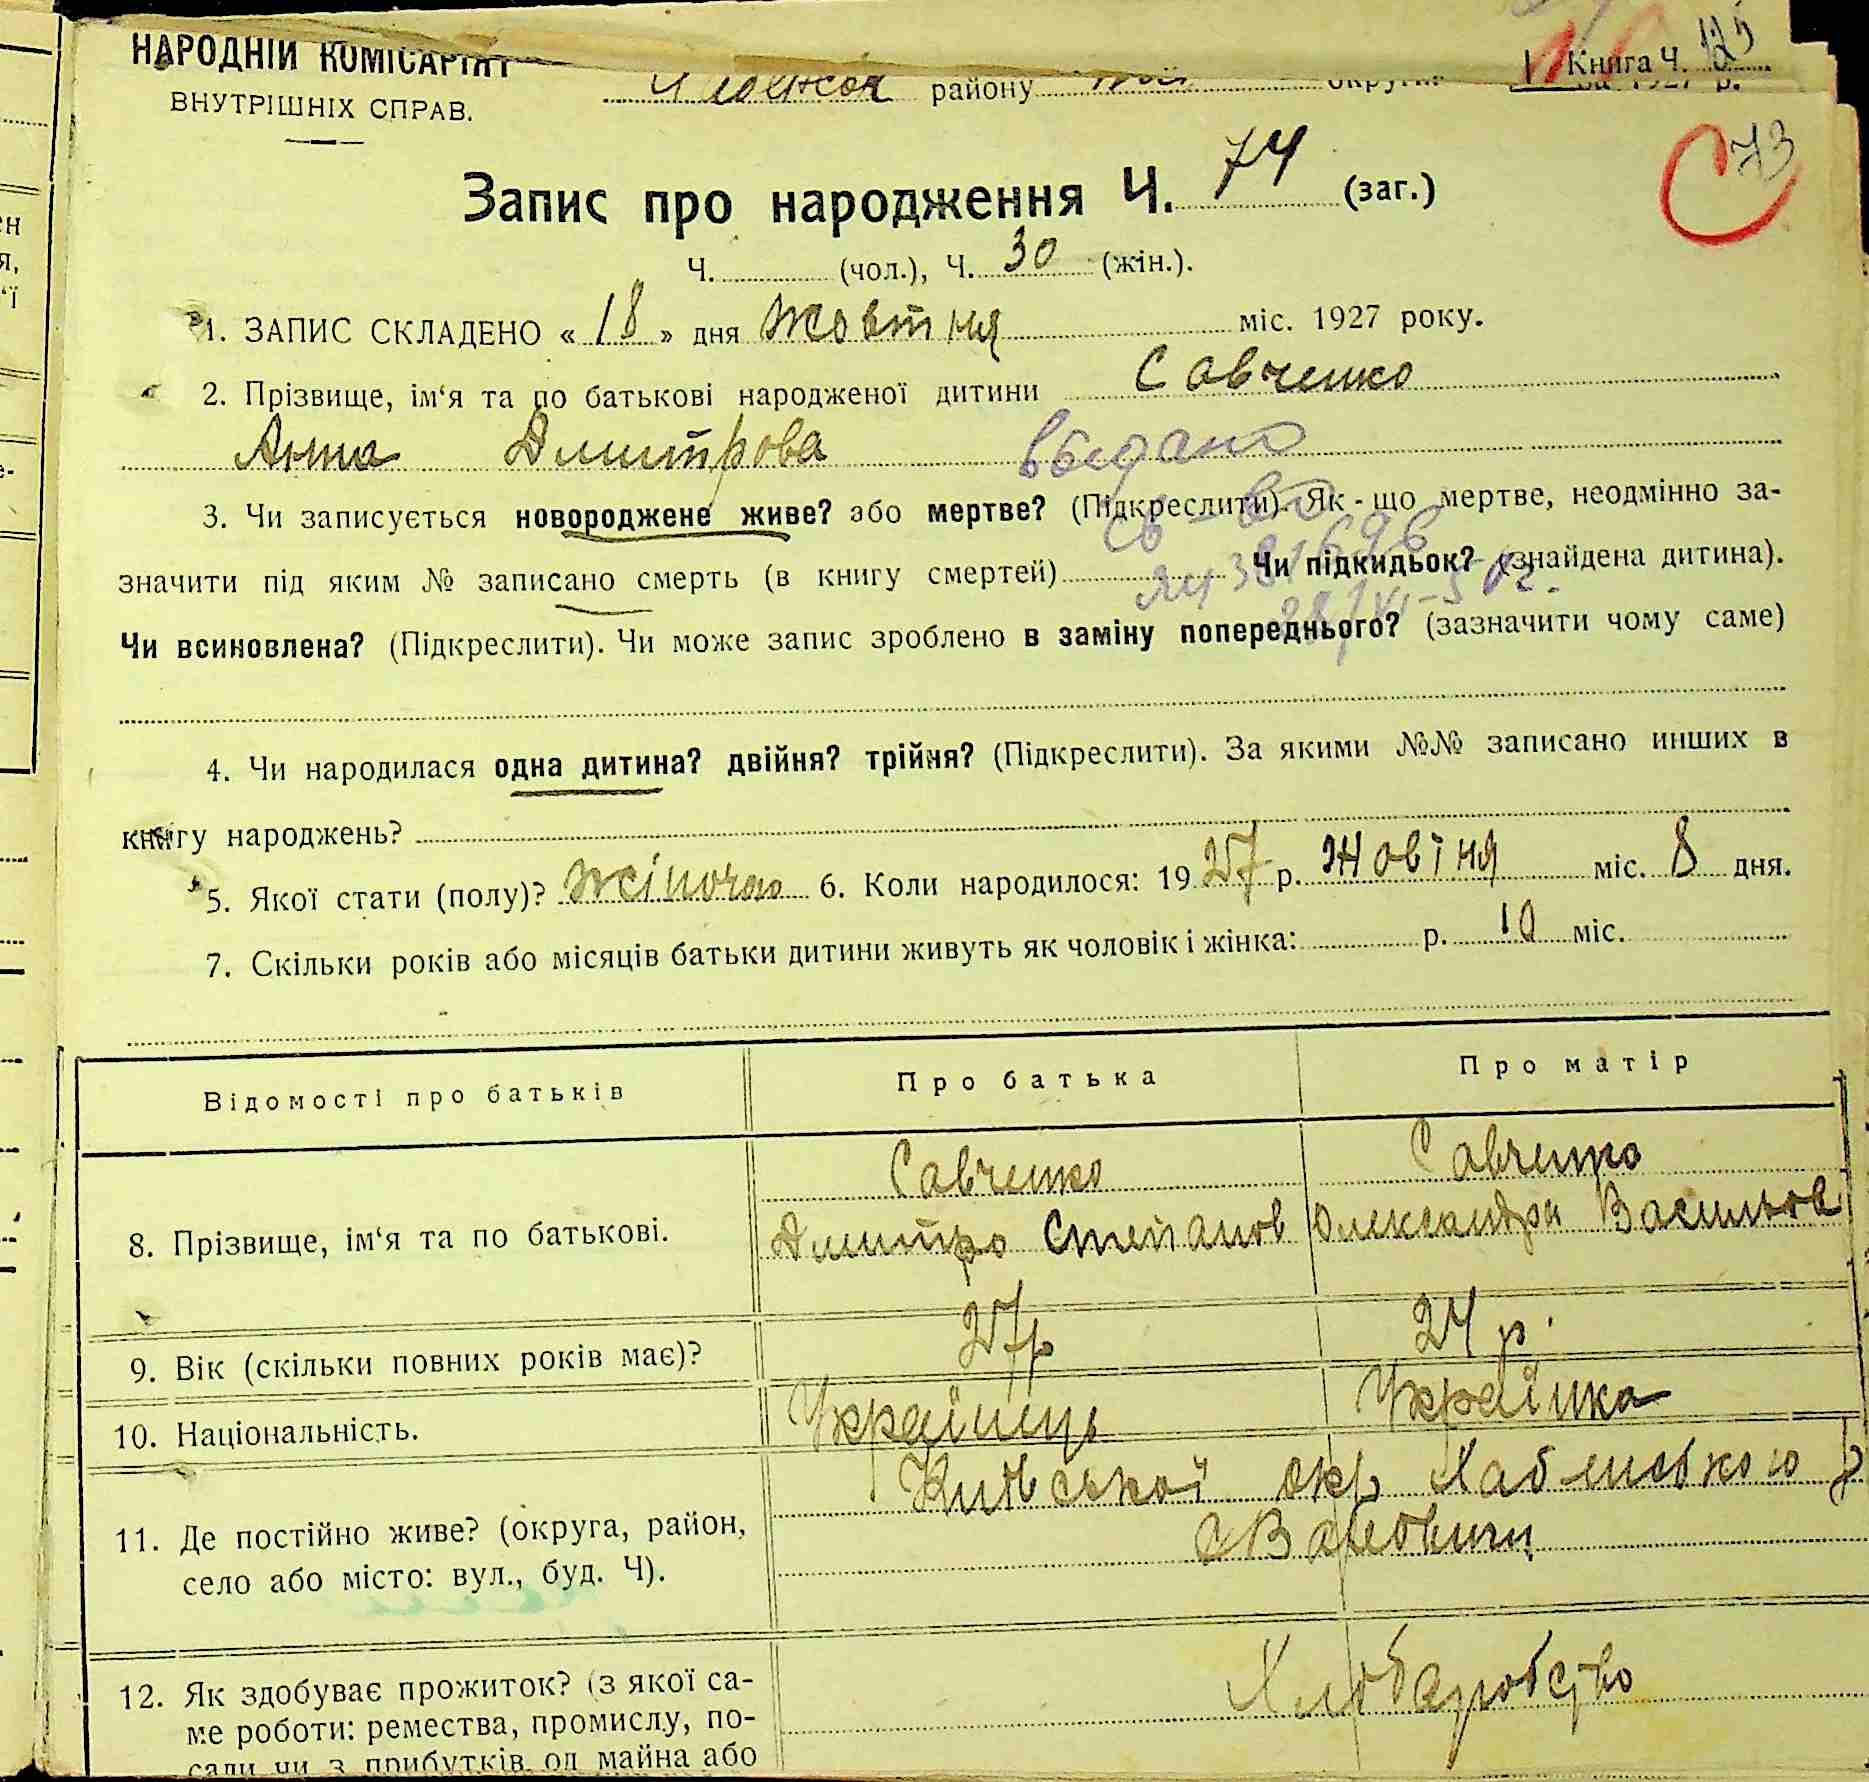 НАРОДНІЙ КОМІСАРІЯТ
ВНУТРІШНІХ СПРАВ.
району округи
Книга Ч. 125
за 1927 р.
73
Запис про народження Ч. 74 (заг.)
Ч. (чол.), Ч. 30 (жін.).
1. ЗАПИС СКЛАДЕНО « 18 » дня жовтня міс. 1927 року.
2. Прізвище, ім‘я та по батькові народженої дитини Савченко
Анна Дмитрова
выдано
св-во
3. Чи записується новороджене живе? або мертве? (Підкреслити). Як-що мертве, неодмінно за-
значити під яким № записано смерть (в книгу смертей) Чи підкидьок? (знайдена дитина).
Чи всиновлена? (Підкреслити). Чи може запис зроблено в заміну попереднього? (зазначити чому саме)
4. Чи народилася одна дитина? двійня? трійня? (Підкреслити). За якими №№ записано инших в
книгу народжень?
5. Якої стати (полу)? жіночою 6. Коли народилося: 1927 р. Жовтня міс. 8 дня.
7. Скільки років або місяців батьки дитини живуть як чоловік і жінка: р. 10 міс.
Відомості про батьків Про батька Про матір
Савченко Савченко
8. Прізвище, ім‘я та по батькові. Дмитро Степанов Олександра Васильов
9. Вік (скільки повних років має)? 27р 24 р.
10. Національність. Українець Українка
Київської окр Хабенського р
11. Де постійно живе? (округа, район,
с Варовичи
село або місто: вул., буд. Ч).
12. Як здобуває прожиток? (з якої са- Хліборобство
ме роботи: ремества, промислу, по-
сади чи з прибутків од майна або